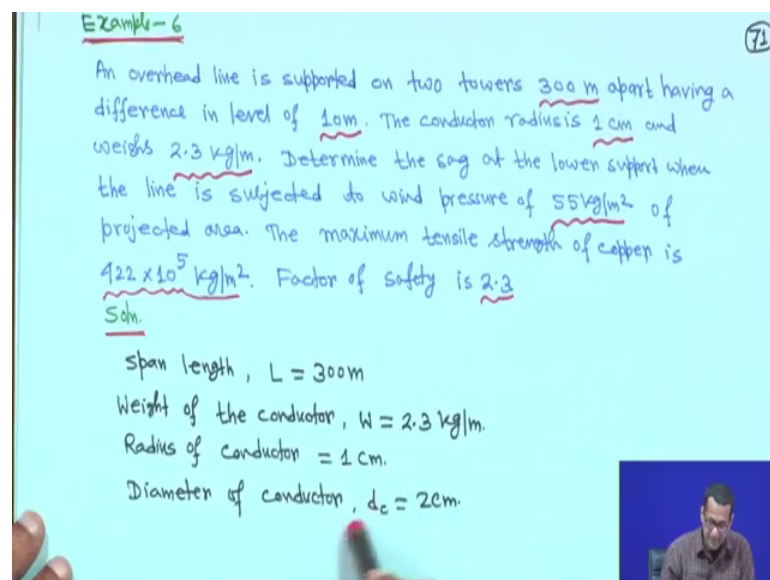 Example-6
71
An overhead line is supported on two towers 300 m apart having a
difference in level of 10m. The conductor radius is 1 cm and
weighs 2.3 kg/m. Determine the sag at the lower support when
the line is subjected to wind pressure of 55kg/m² of
projected area. The maximum tensile strength of copper is
422 × 10⁵ kg/m². Factor of safety is 2.3
Soln.
Span length, L = 300m
Weight of the conductor, W = 2.3 kg/m.
Radius of conductor = 1 cm.
Diameter of conductor, dc = 2cm.